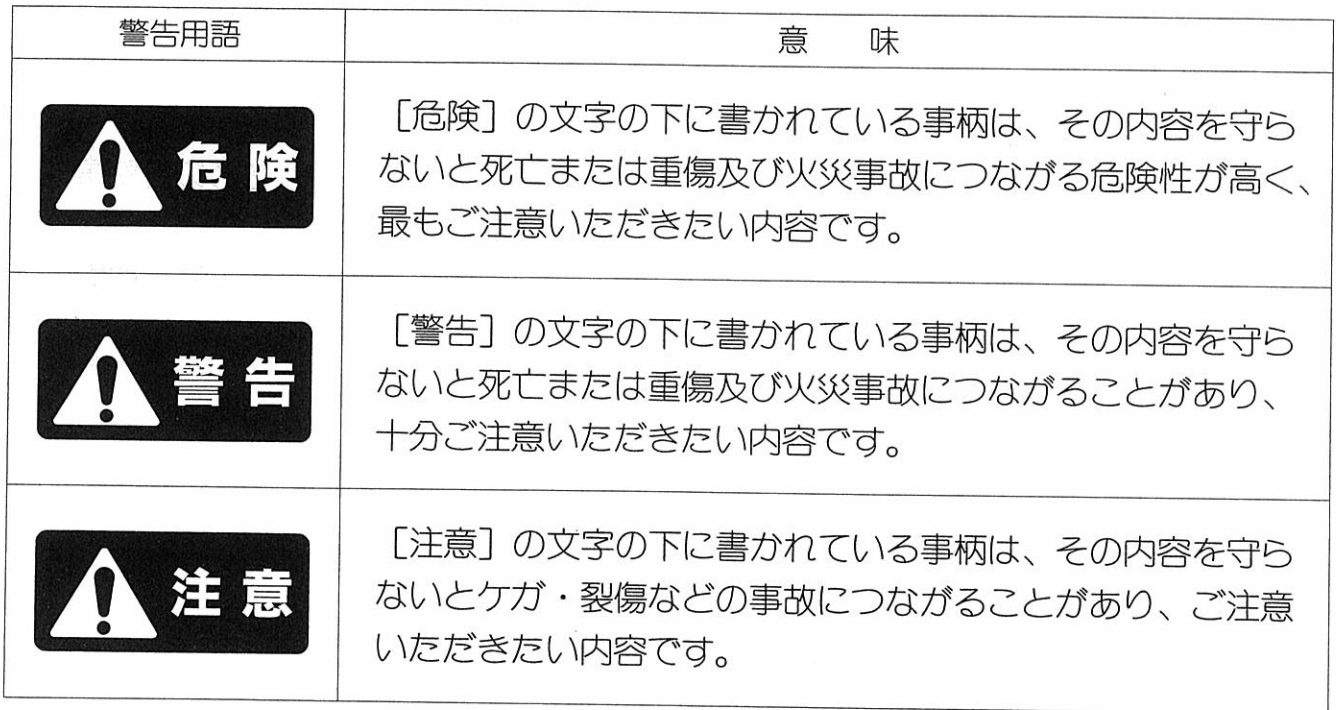 警告用語
意　味
危険
［危険］の文字の下に書かれている事柄は、その内容を守ら
ないと死亡または重傷及び火災事故につながる危険性が高く、
最もご注意いただきたい内容です。
警告
［警告］の文字の下に書かれている事柄は、その内容を守ら
ないと死亡または重傷及び火災事故につながることがあり、
十分ご注意いただきたい内容です。
注意
［注意］の文字の下に書かれている事柄は、その内容を守ら
ないとケガ・裂傷などの事故につながることがあり、ご注意
いただきたい内容です。